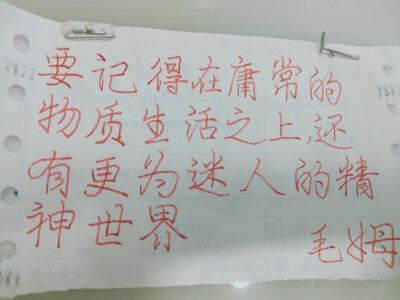 要记得在庸常的
物质生活之上,还
有更为迷人的精
神世界
毛姆